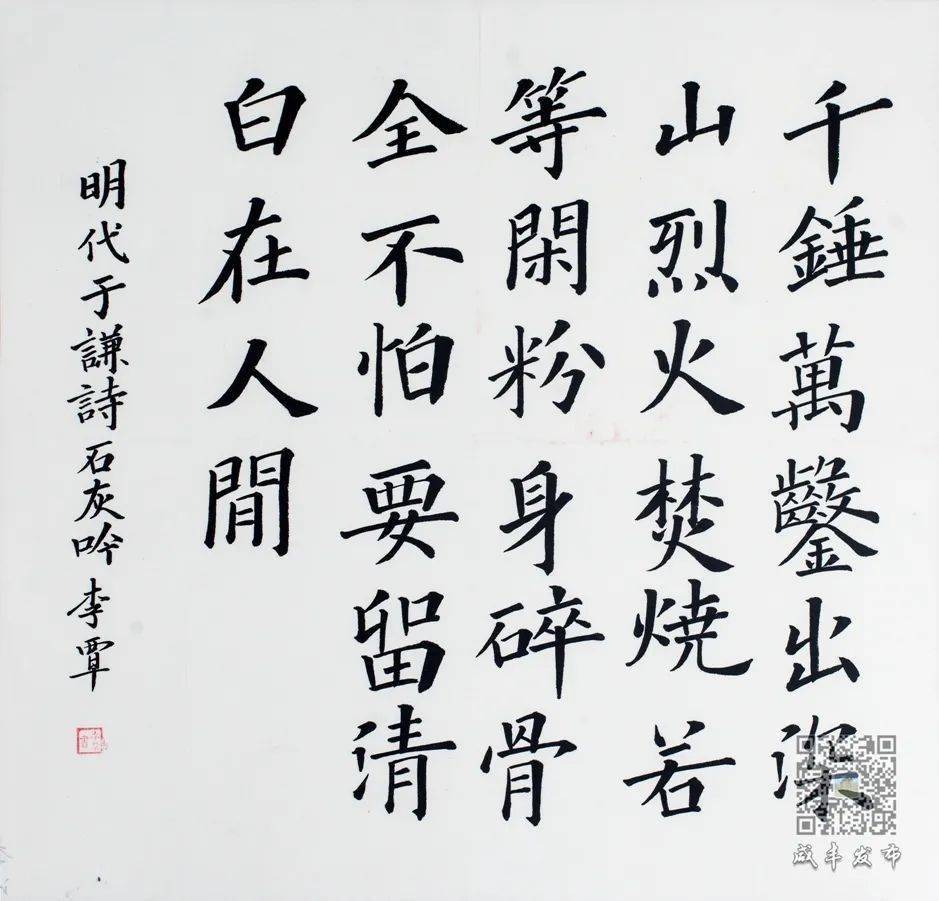 千錘萬鑿出深
山烈火焚燒若
等閑粉身碎骨
全不怕要留清
白在人間
明代于謙詩石灰吟李覃
咸丰发布